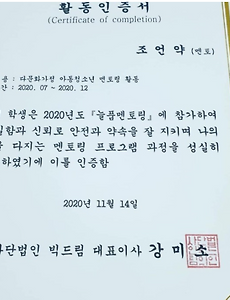 활동인증서
(Certificate of completion)
조언약 (멘토)
: 다문화가정 아동청소년 멘토링 활동
간 : 2020. 07 ~ 2020. 12
학생은 2020년도 『늘품멘토링』에 참가하여
신뢰로 안전과 약속을 잘 지키며 나의
다지는 멘토링 프로그램 과정을 성실히
하였기에 이를 인증함
2020년 11월 14일
사단법인 빅드림 대표이사 강미소